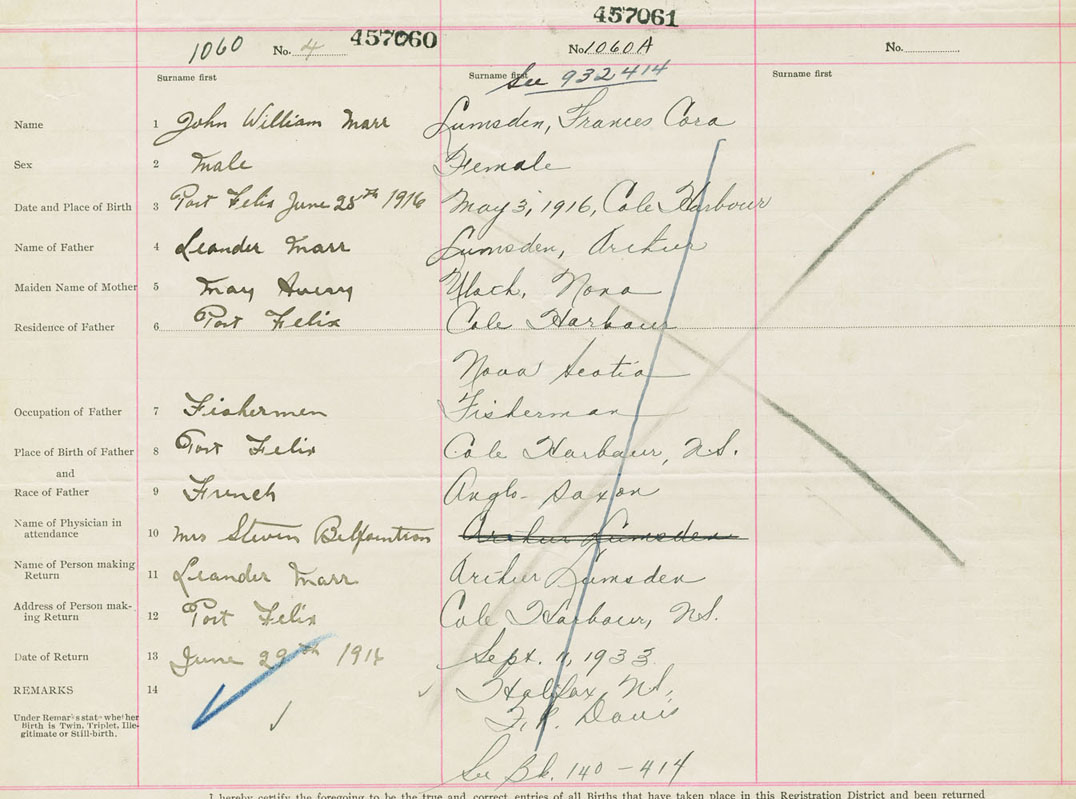 457061
1060 No. 4 457060 No. 1060A No.
Surname first Surname first See 932414 Surname first
Name 1 John William Marr Lumsden, Frances Cora
Sex 2 Male Female
Date and Place of Birth 3 Port Felix June 25th 1916 May 3, 1916, Cole Harbour
Name of Father 4 Leander Marr Lumsden, Arthur
Maiden Name of Mother 5 May Avery Nona
Residence of Father 6 Port Felix Cole Harbour
Nova Scotia
Occupation of Father 7 Fishermen Fisherman
Place of Birth of Father 8 Port Felix Cole Harbour, N.S.
and
Race of Father 9 French Anglo-Saxon
Name of Physician in
attendance 10 Mrs Steven Arthur Lumsden
Name of Person making
Return 11 Leander Marr Arthur Lumsden
Address of Person mak-
ing Return 12 Port Felix Cole Harbour, N.S.
Date of Return 13 June 29th 1916 Sept. 11, 1933
REMARKS 14 Halifax, N.S.
Under Remarks state whether
Birth is Twin, Triplet, Ille-
gitimate or Still-birth.
Davis
See Bk. 140-414
I hereby certify the foregoing to be the true and correct entries of all Births that have taken place in this Registration District and been returned